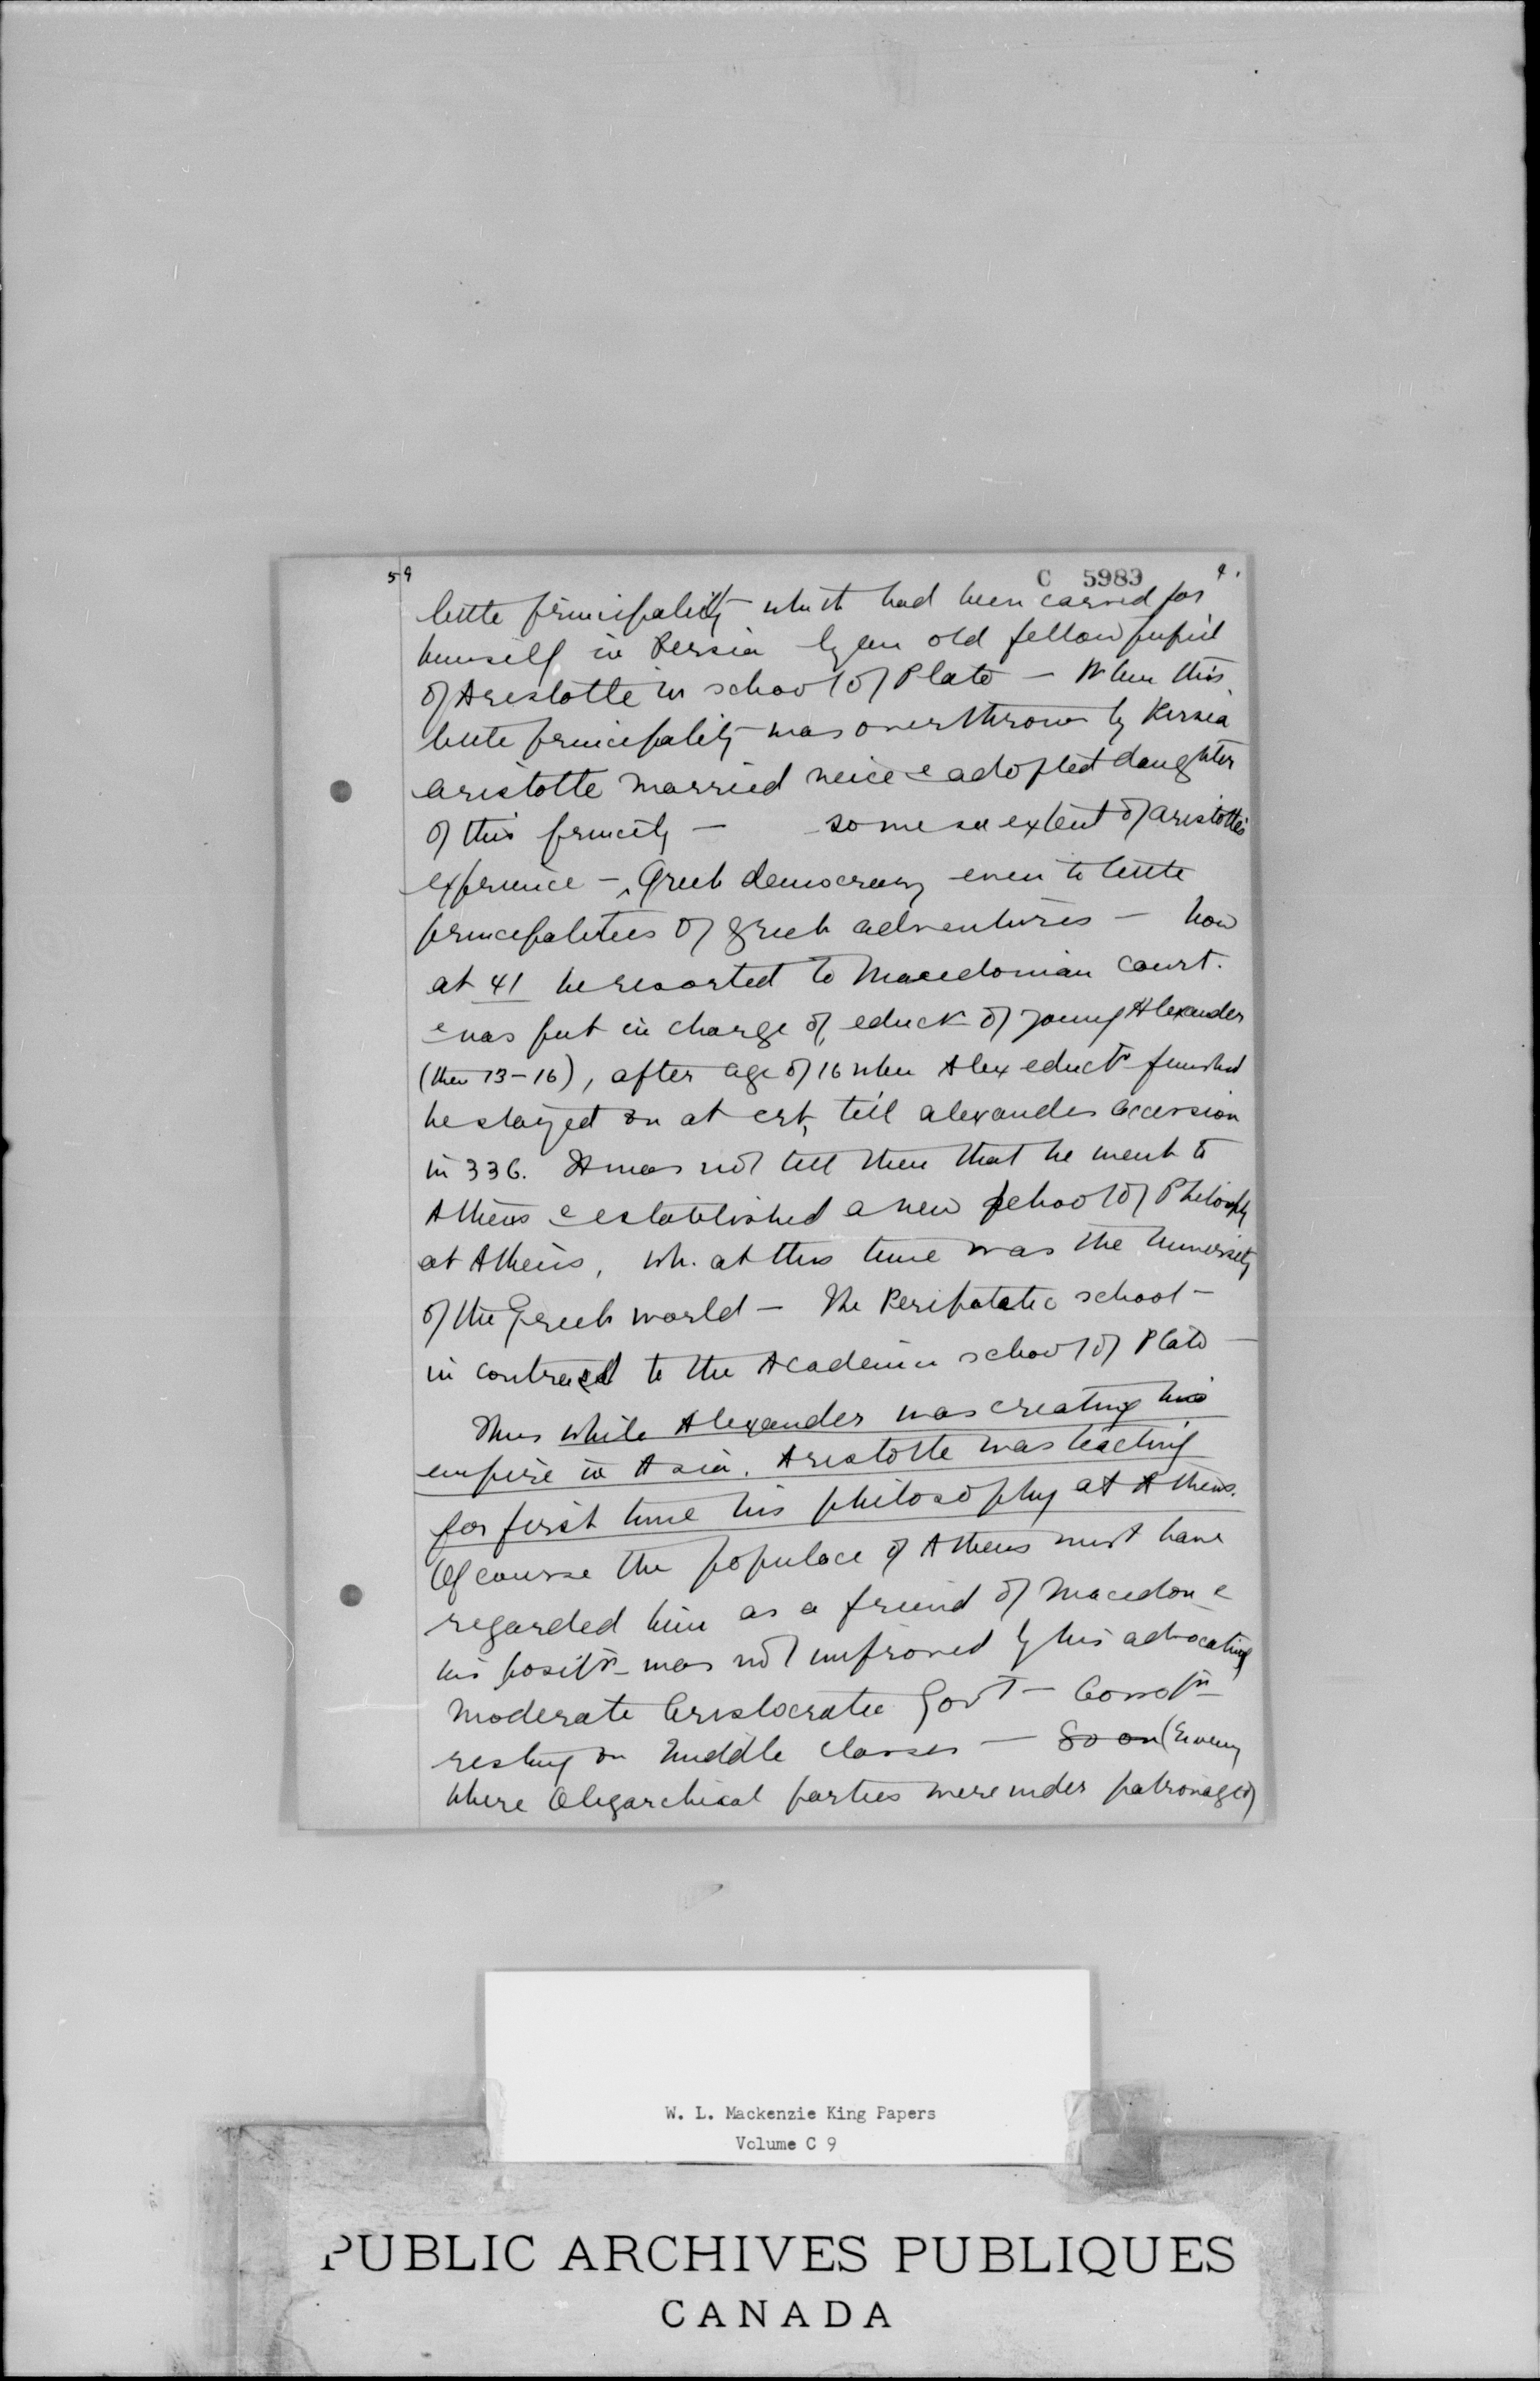 59
C 5983
9.
little principality which had been carved for
himself in Persia by an old fellow pupil
of Aristotle in school of Plato — When this
little principality was overthrown by Persia
Aristotle married neice & adopted daughter
of this — some extent of Aristotle's
experience — Greek democracy even to little
principalities of Greek adventures — now
at 41 he resorted to Macedonian court.
& was put in charge of educ of young Alexander
(then 13-16), after age of 16 when Alex eductn finished
he stayed on at crt, till Alexander accession
in 336. It was not till then that he went to
Athens & established a new school of Philosophy
at Athens, wh. at this time was the University
of the Greek world — The Peripatetic school —
in contrast to the Academic school of Plato —
Thus while Alexander was creating his
empire in Asia. Aristotle was teaching
for first time his philosophy at Athens.
Of course the populace of Athens must have
regarded him as a friend of Macedon &
his positn was not improved by his advocating
moderate Aristocratic Govt —
resting on Middle classes — So on
where Oligarchical parties were under patronage of
W. L. Mackenzie King Papers
Volume C 9
PUBLIC ARCHIVES PUBLIQUES
CANADA